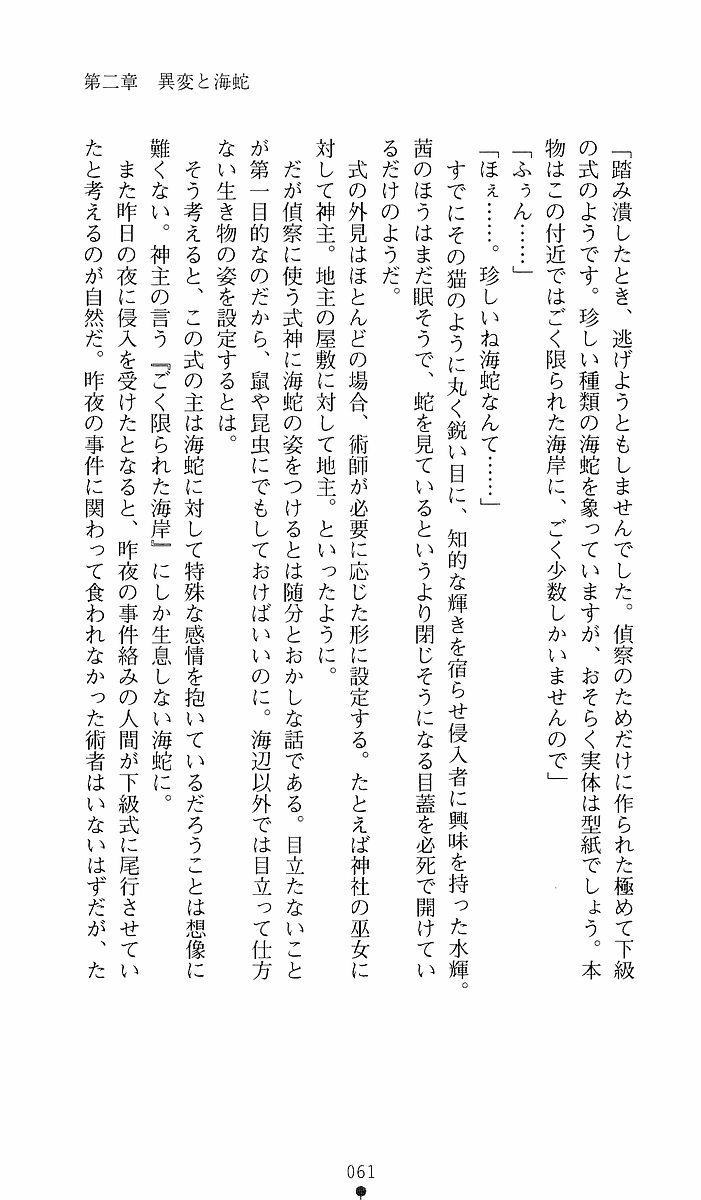 第二章　異変と海蛇
「踏み潰したとき、逃げようともしませんでした。偵察のためだけに作られた極めて下級
の式のようです。珍しい種類の海蛇を象っていますが、おそらく実体は型紙でしょう。本
物はこの付近ではごく限られた海岸に、ごく少数しかいませんので」
「ふぅん……」
「ほぇ……。珍しいね海蛇なんて……」
　すでにその猫のように丸く鋭い目に、知的な輝きを宿らせ侵入者に興味を持った水輝。
茜のほうはまだ眠そうで、蛇を見ているというより閉じそうになる目蓋を必死で開けてい
るだけのようだ。
　式の外見はほとんどの場合、術師が必要に応じた形に設定する。たとえば神社の巫女に
対して神主。地主の屋敷に対して地主。といったように。
　だが偵察に使う式神に海蛇の姿をつけるとは随分とおかしな話である。目立たないこと
が第一目的なのだから、鼠や昆虫にでもしておけばいいのに。海辺以外では目立って仕方
ない生き物の姿を設定するとは。
　そう考えると、この式の主は海蛇に対して特殊な感情を抱いているだろうことは想像に
難くない。神主の言う『ごく限られた海岸』にしか生息しない海蛇に。
　また昨日の夜に侵入を受けたとなると、昨夜の事件絡みの人間が下級式に尾行させてい
たと考えるのが自然だ。昨夜の事件に関わって食われなかった術者はいないはずだが、た
061